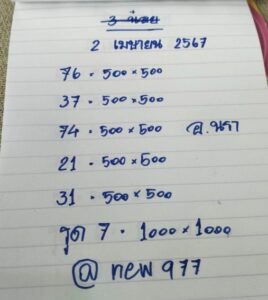 2 เมษายน 2567
76 - 500 × 500
37 - 500 × 500
74 - 500 × 500 อ.นรา
21 - 500 × 500
31 - 500 × 500
รูด 7 - 1000 × 1000
@ new 977